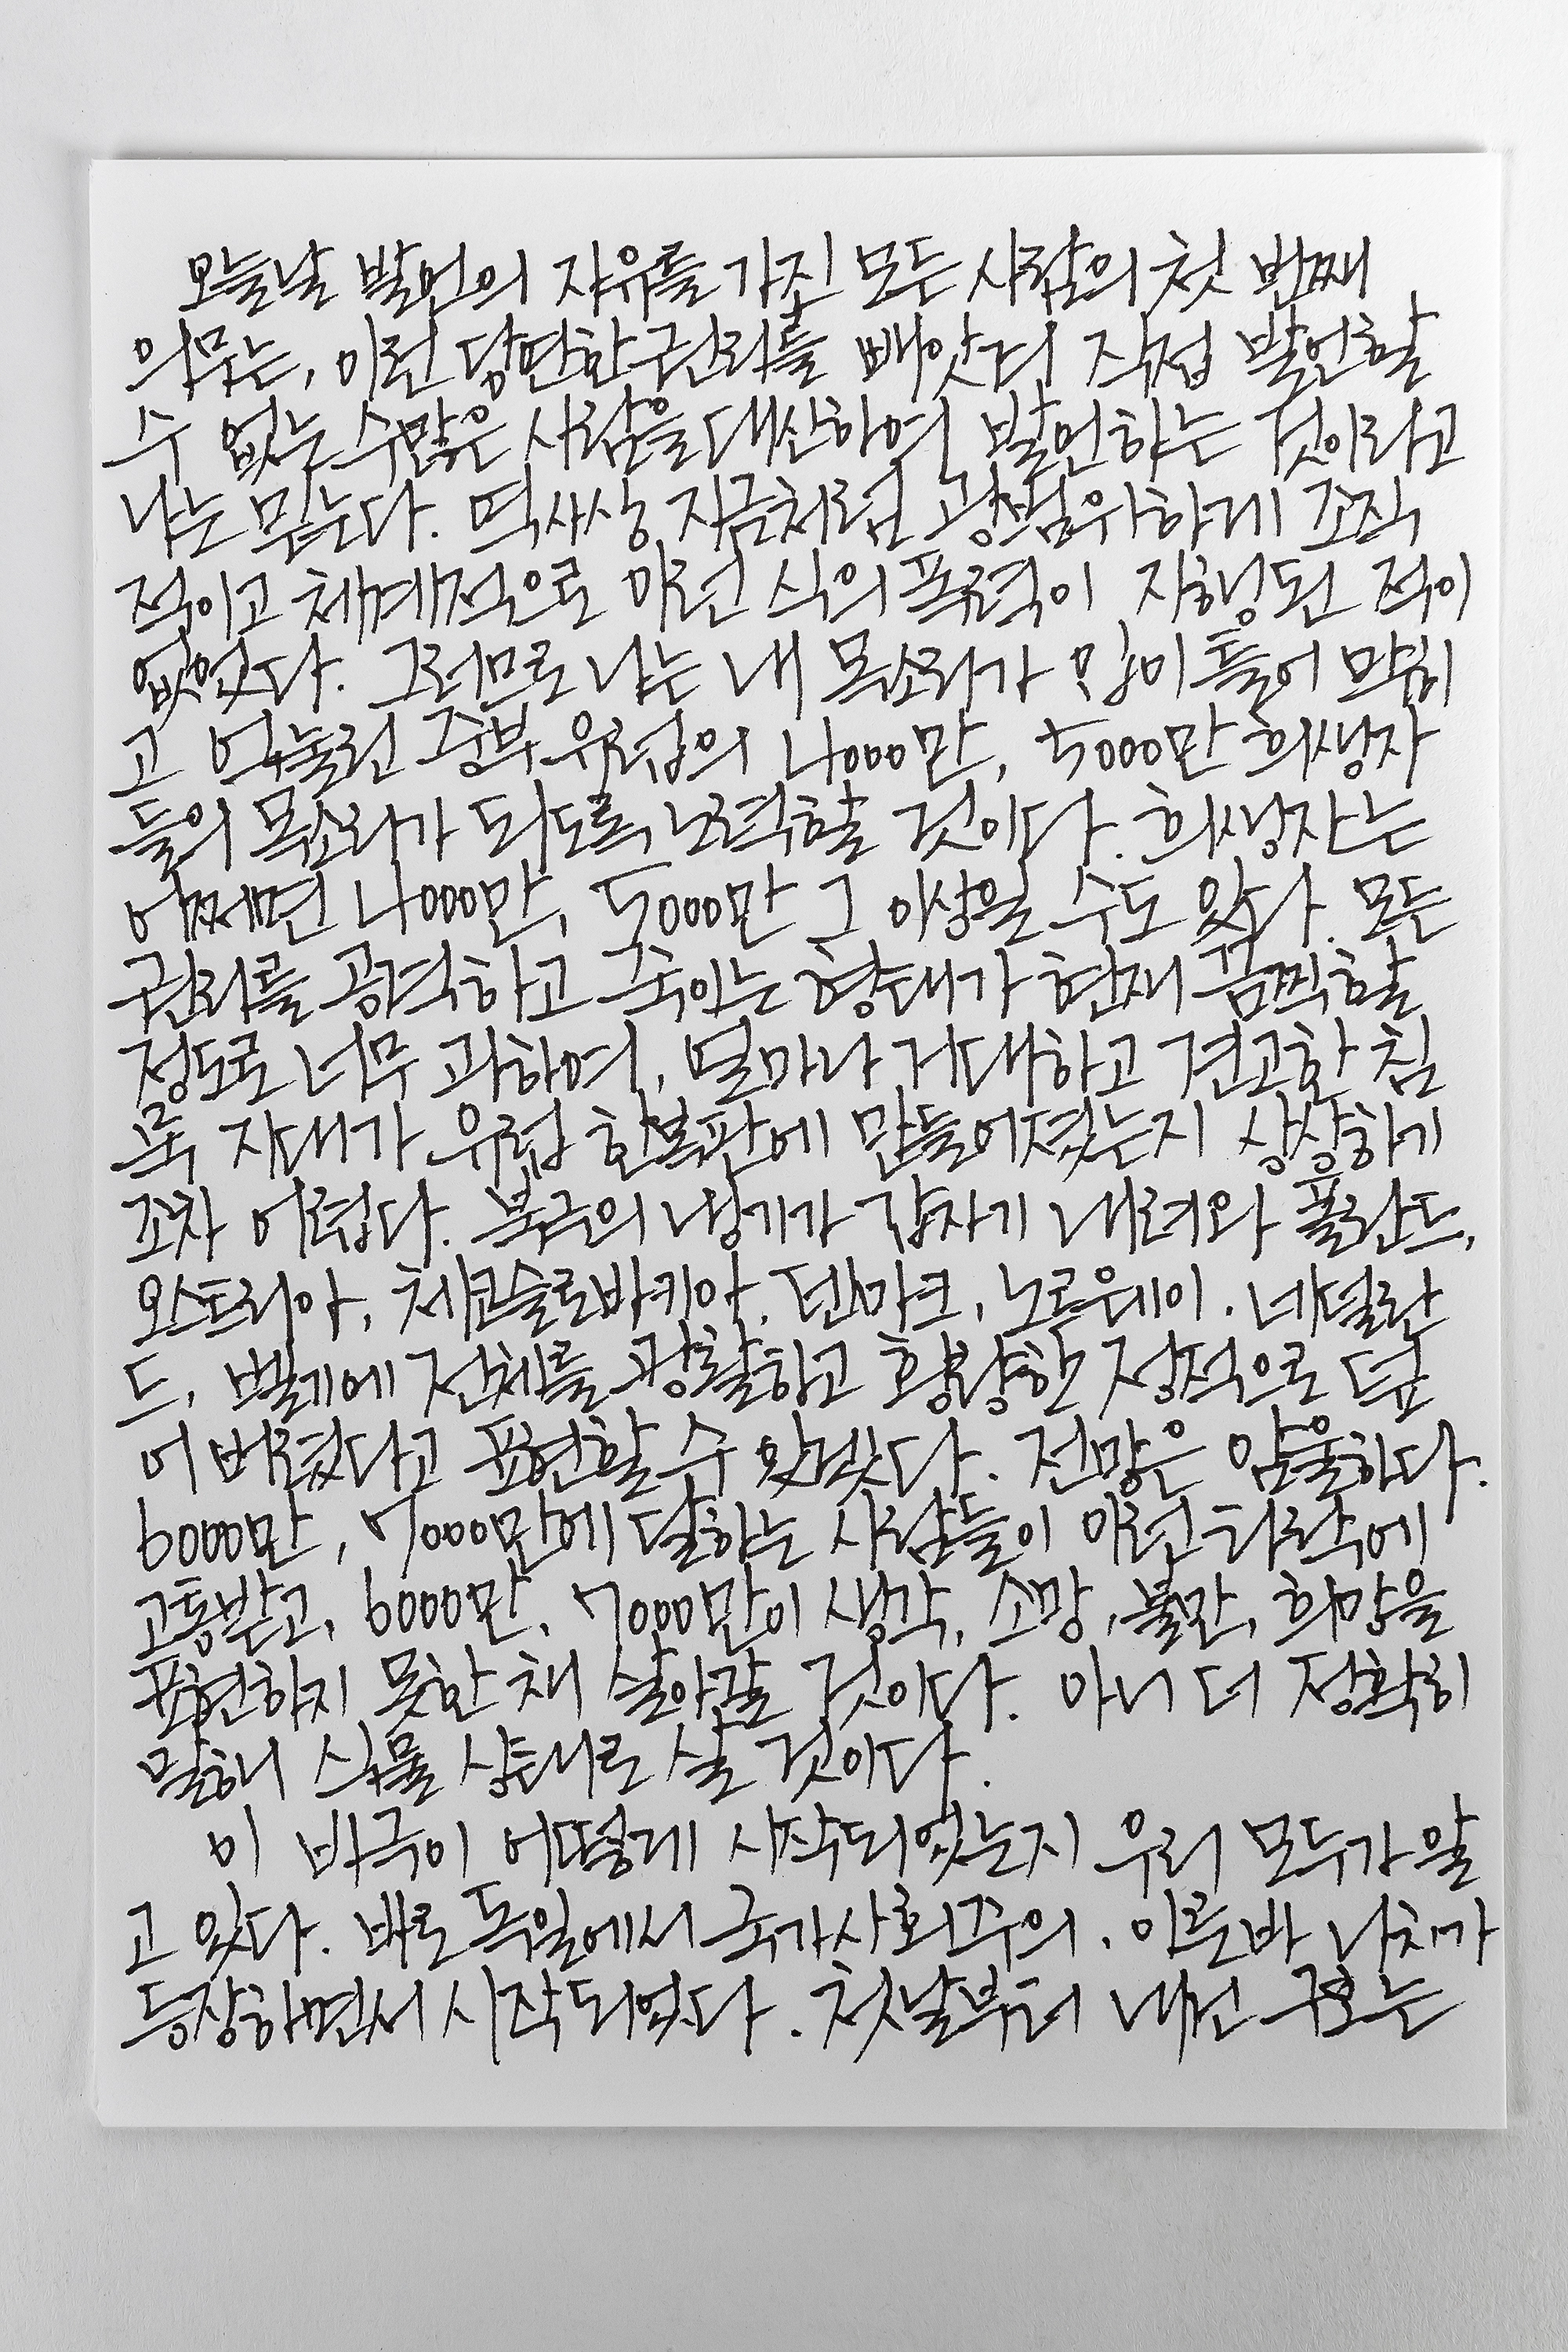 오늘날 발언의 자유를 가진 모든 사람의 첫 번째
의무는, 이런 당연한 권리를 빼앗겨 직접 발언할
수 없는 수많은 사람을 대신하여 발언하는 것이라고
나는 믿는다. 역사상 지금처럼 광범위하게 조직
적이고 체계적으로 이런 식의 폭력이 자행된 적이
없었다. 그러므로 나는 내 목소리가 입이 틀어 막히
고 억눌린 중부 유럽의 4000만, 5000만 희생자
들의 목소리가 되도록 노력할 것이다. 희생자는
어쩌면 4000만, 5000만 그 이상일 수도 있다. 모든
권리를 공격하고 죽이는 형태가 현재 끔찍할
정도로 너무 과하여, 얼마나 거대하고 견고한 침
묵 지대가 유럽 한복판에 만들어졌는지 상상하기
조차 어렵다. 북극의 냉기가 갑자기 내려와 폴란드,
오스트리아, 체코슬로바키아, 덴마크, 노르웨이, 네덜란
드, 벨기에 전체를 광활하고 황량한 정적으로 덮
어 버렸다고 표현할 수 있겠다. 전망은 암울하다.
6000만, 7000만에 달하는 사람들이 이런 타락에
고통받고, 6000만, 7000만이 생각, 소망, 불만, 희망을
표현하지 못한 채 살아갈 것이다. 아니 더 정확히
말해 식물 상태로 살 것이다.
이 비극이 어떻게 시작되었는지 우리 모두가 알
고 있다. 바로 독일에서 국가사회주의, 이른바 나치가
등장하면서 시작되었다. 첫날부터 내건 구호는